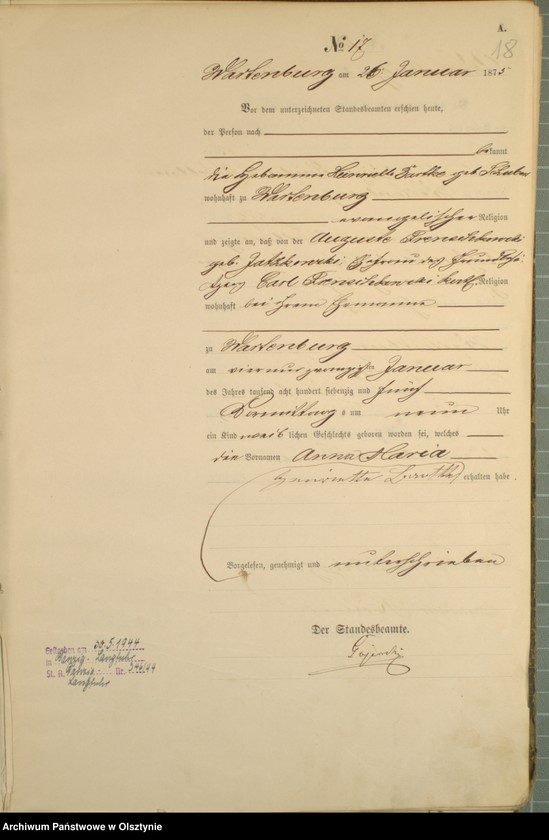 A.
No 17
18
Wartenburg am 26 Januar 1875
Vor dem unterzeichneten Standesbeamten erschien heute,
der Person nach
bekannt
die Hebamme Henriette geb
wohnhaft zu Wartenburg
evangelischer Religion
und zeigte an, daß von der Auguste
geb. Ehefrau des
Carl kath. Religion
wohnhaft bei ihrem Ehemanne
zu Wartenburg
am vier und zwanzigsten Januar
des Jahres tausend acht hundert siebenzig und fünf
Vormittags um neun Uhr
ein Kind weiblichen Geschlechts geboren worden sei, welches
die Vornamen Anna Maria
Henriette erhalten habe.
Vorgelesen, genehmigt und unterschrieben
Der Standesbeamte.
Gestorben am 30.5.1944
in Danzig-Langfuhr
St. A. Danzig Nr.
Langfuhr
Archiwum Państwowe w Olsztynie